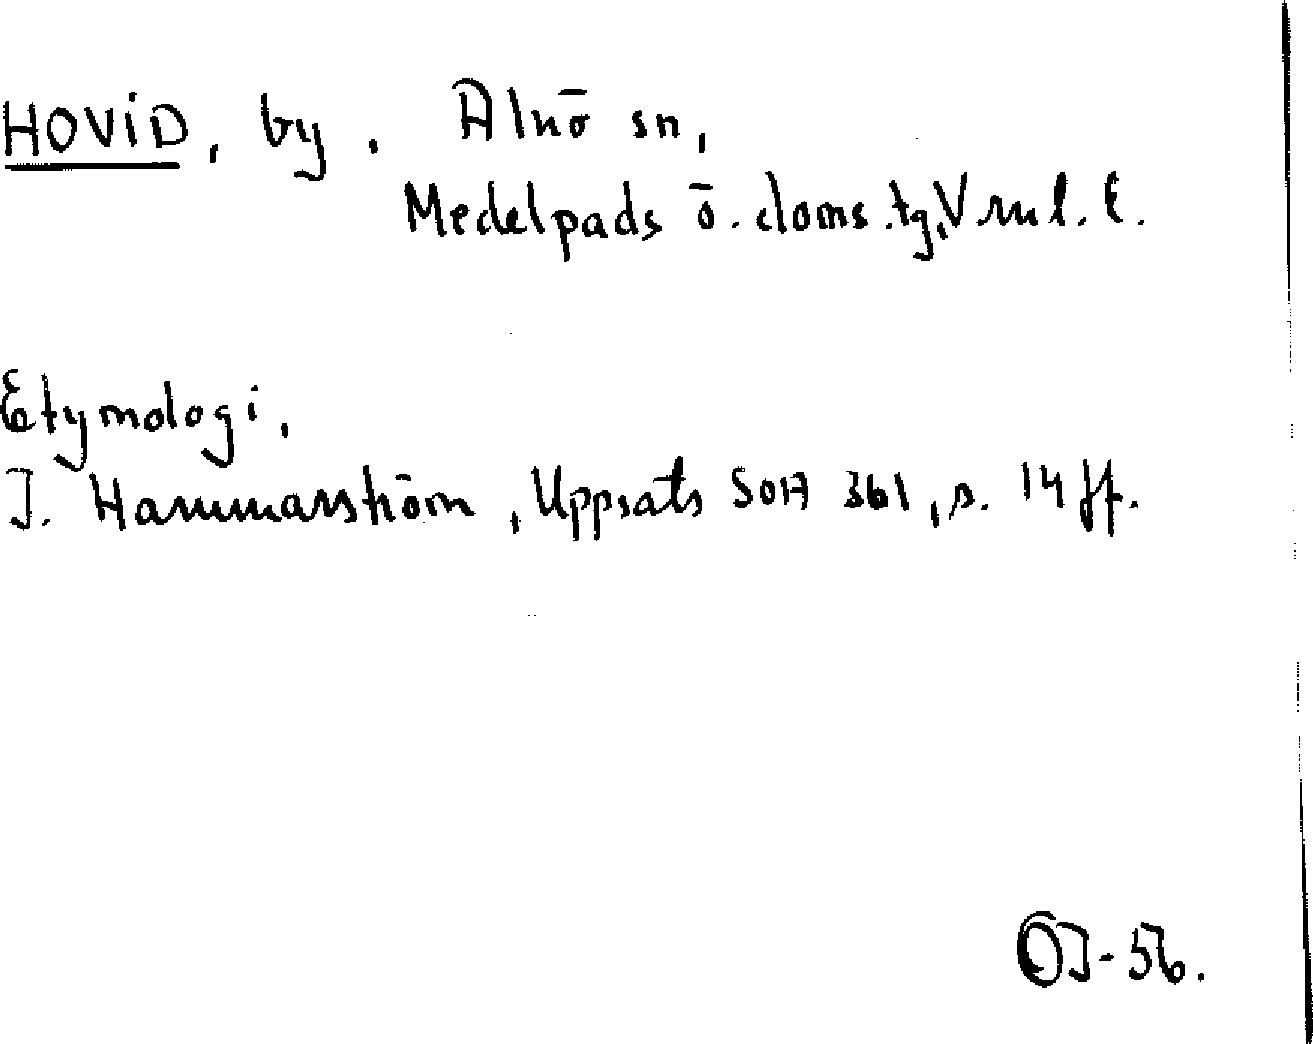 HOVID, by. Alnö sn,
Medelpads ö. doms.tg, Vrnl. l.
Etymologi,
J. Hammarström, Uppsats SOA 361, s. 14 ff.
OJ-56.